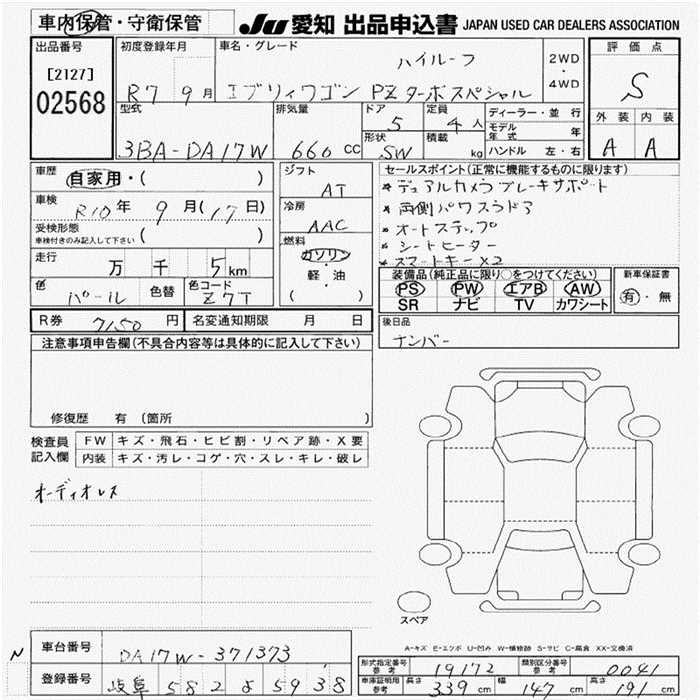 車内保管・守衛保管
JU 愛知 出品申込書 JAPAN USED CAR DEALERS ASSOCIATION
出品番号 初度登録年月 車名・グレード 評価点
[2127] ハイルーフ 2WD・4WD
02568 R7 9月 エブリィワゴン PZターボスペシャル S
型式 排気量 ドア 5 定員 4人 ディーラー・並行 外装 内装
モデル年式 年
3BA-DA17W 660cc 形状 SW 積載 kg ハンドル 左・右 A A
車歴 自家用・( ) シフト AT セールスポイント(正常に機能するものに限ります)
*デュアルカメラブレーキサポート
車検 R10年 9月(17日) 冷房 AAC *両側パワスラドア
受検形態 車検付きのみ記入して下さい ( ) *オートステップ
燃料 ガソリン *シートヒーター
走行 万 千 5km 軽・油 *スマートキー×2
( ) 装備品(純正品に限り○をつけてください) 新車保証書
色 パール 色替 色コード Z7T PS PW エアB AW 有・無
SR ナビ TV カワシート
R券 7150円 名変通知期限 月 日 後日品
ナンバー
注意事項申告欄(不具合内容等は具体的に記入して下さい)
修復歴 有 (箇所 )
検査員記入欄 FW キズ・飛石・ヒビ割・リペア跡・X要
内装 キズ・汚レ・コゲ・穴・スレ・キレ・破レ
オーディオレス
スペア
A-キズ E-エクボ U-凹み W-補修跡 S-サビ C-腐食 XX-交換済
N 車台番号 DA17W-371373
形式指定番号 参考 19172 類別区分番号 参考 0041
登録番号 岐阜 582 る 5938
車庫証明用 参考 長さ 339cm 幅 147cm 高さ 191cm